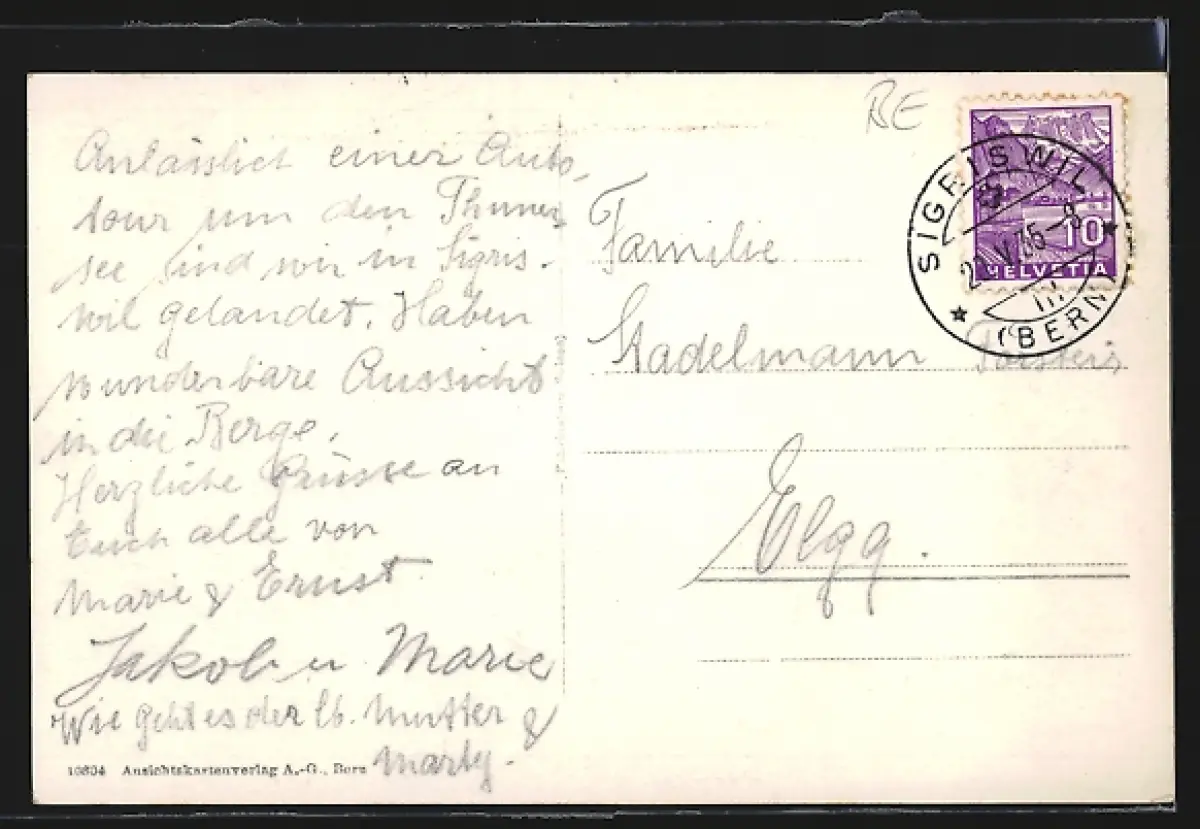 Anlässlich einer Auto-
tour um den Thuner-
see sind wir in Sigris-
wil gelandet. Haben
wunderbare Aussicht
in die Berge.
Herzliche Grüsse an
Euch alle von
Marie & Ernst
Jakob u Marie
Wie geht es der lb. Mutter &
Marty.
10804 Ansichtskartenverlag A.-G., Bern
BE
SIGRISWIL
(BERN)
10
HELVETIA
Familie
Stadelmann
Elgg.